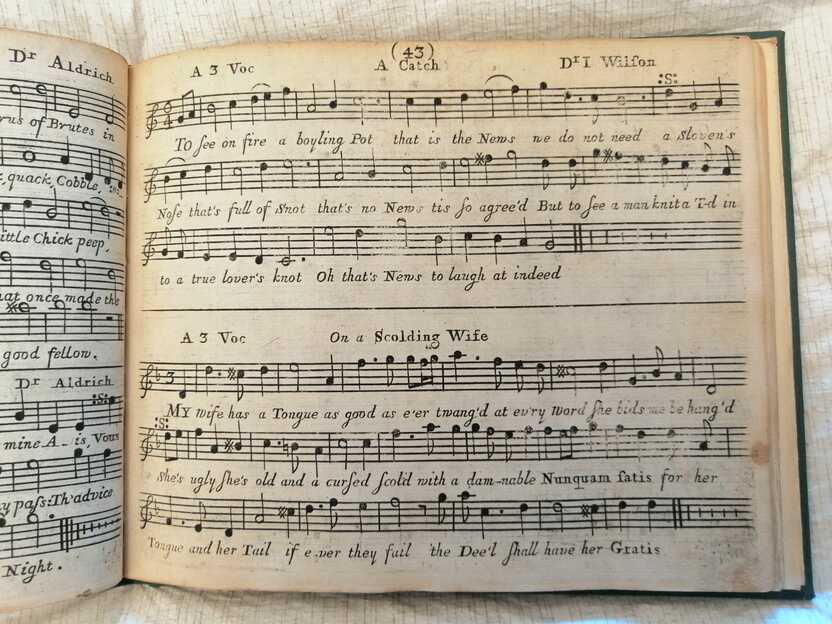 Dr Aldrich
rus of Brutes in
quack, Cobble,
ittle Chick peep,
hat once made the
good fellow.
Dr Aldrich
:S:
mine A-is, Vous
pass: Th'advice
Night.
(43)
A 3 Voc A Catch Dr I Wilſon
:S:
TO ſee on fire a boyling Pot that is the News we do not need a Sloven's
Noſe that's full of Snot that's no News tis ſo agree'd But to ſee a man knit a T-d in
to a true lover's knot Oh that's News to laugh at indeed
A 3 Voc On a Scolding Wife
3
MY wife has a Tongue as good as e'er twang'd at ev'ry Word ſhe bids me be hang'd
:S:
She's ugly ſhe's old and a curſed ſcold with a dam-nable Nunquam ſatis for her
Tongue and her Tail if e.ver they fail the Dee'l ſhall have her Gratis